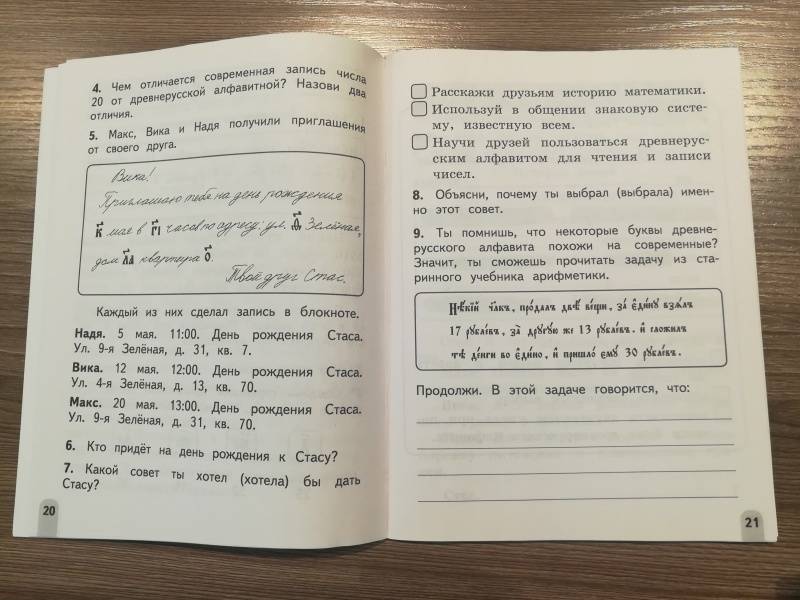 4. Чем отличается современная запись числа
20 от древнерусской алфавитной? Назови два
отличия.
5. Макс, Вика и Надя получили приглашения
от своего друга.
Вика!
Приглашаю тебя на день рождения
к҃ мая в г҃і часов по адресу: ул. Зелёная,
дом л҃а квартира о҃.
Твой друг Стас.
Каждый из них сделал запись в блокноте.
Надя. 5 мая. 11:00. День рождения Стаса.
Ул. 9-я Зелёная, д. 31, кв. 7.
Вика. 12 мая. 12:00. День рождения Стаса.
Ул. 4-я Зелёная, д. 13, кв. 70.
Макс. 20 мая. 13:00. День рождения Стаса.
Ул. 9-я Зелёная, д. 31, кв. 70.
6. Кто придёт на день рождения к Стасу?
7. Какой совет ты хотел (хотела) бы дать
Стасу?
20
Расскажи друзьям историю математики.
Используй в общении знаковую систе-
му, известную всем.
Научи друзей пользоваться древнерус-
ским алфавитом для чтения и записи
чисел.
8. Объясни, почему ты выбрал (выбрала) имен-
но этот совет.
9. Ты помнишь, что некоторые буквы древне-
русского алфавита похожи на современные?
Значит, ты сможешь прочитать задачу из ста-
ринного учебника арифметики.
Нѣкій такъ, продалъ двѣ вещи, за едину взялъ
17 рублевъ, за другую же 13 рублевъ. и сложилъ
тѣ денги во едино, и пришло ему 30 рублевъ.
Продолжи. В этой задаче говорится, что:
21